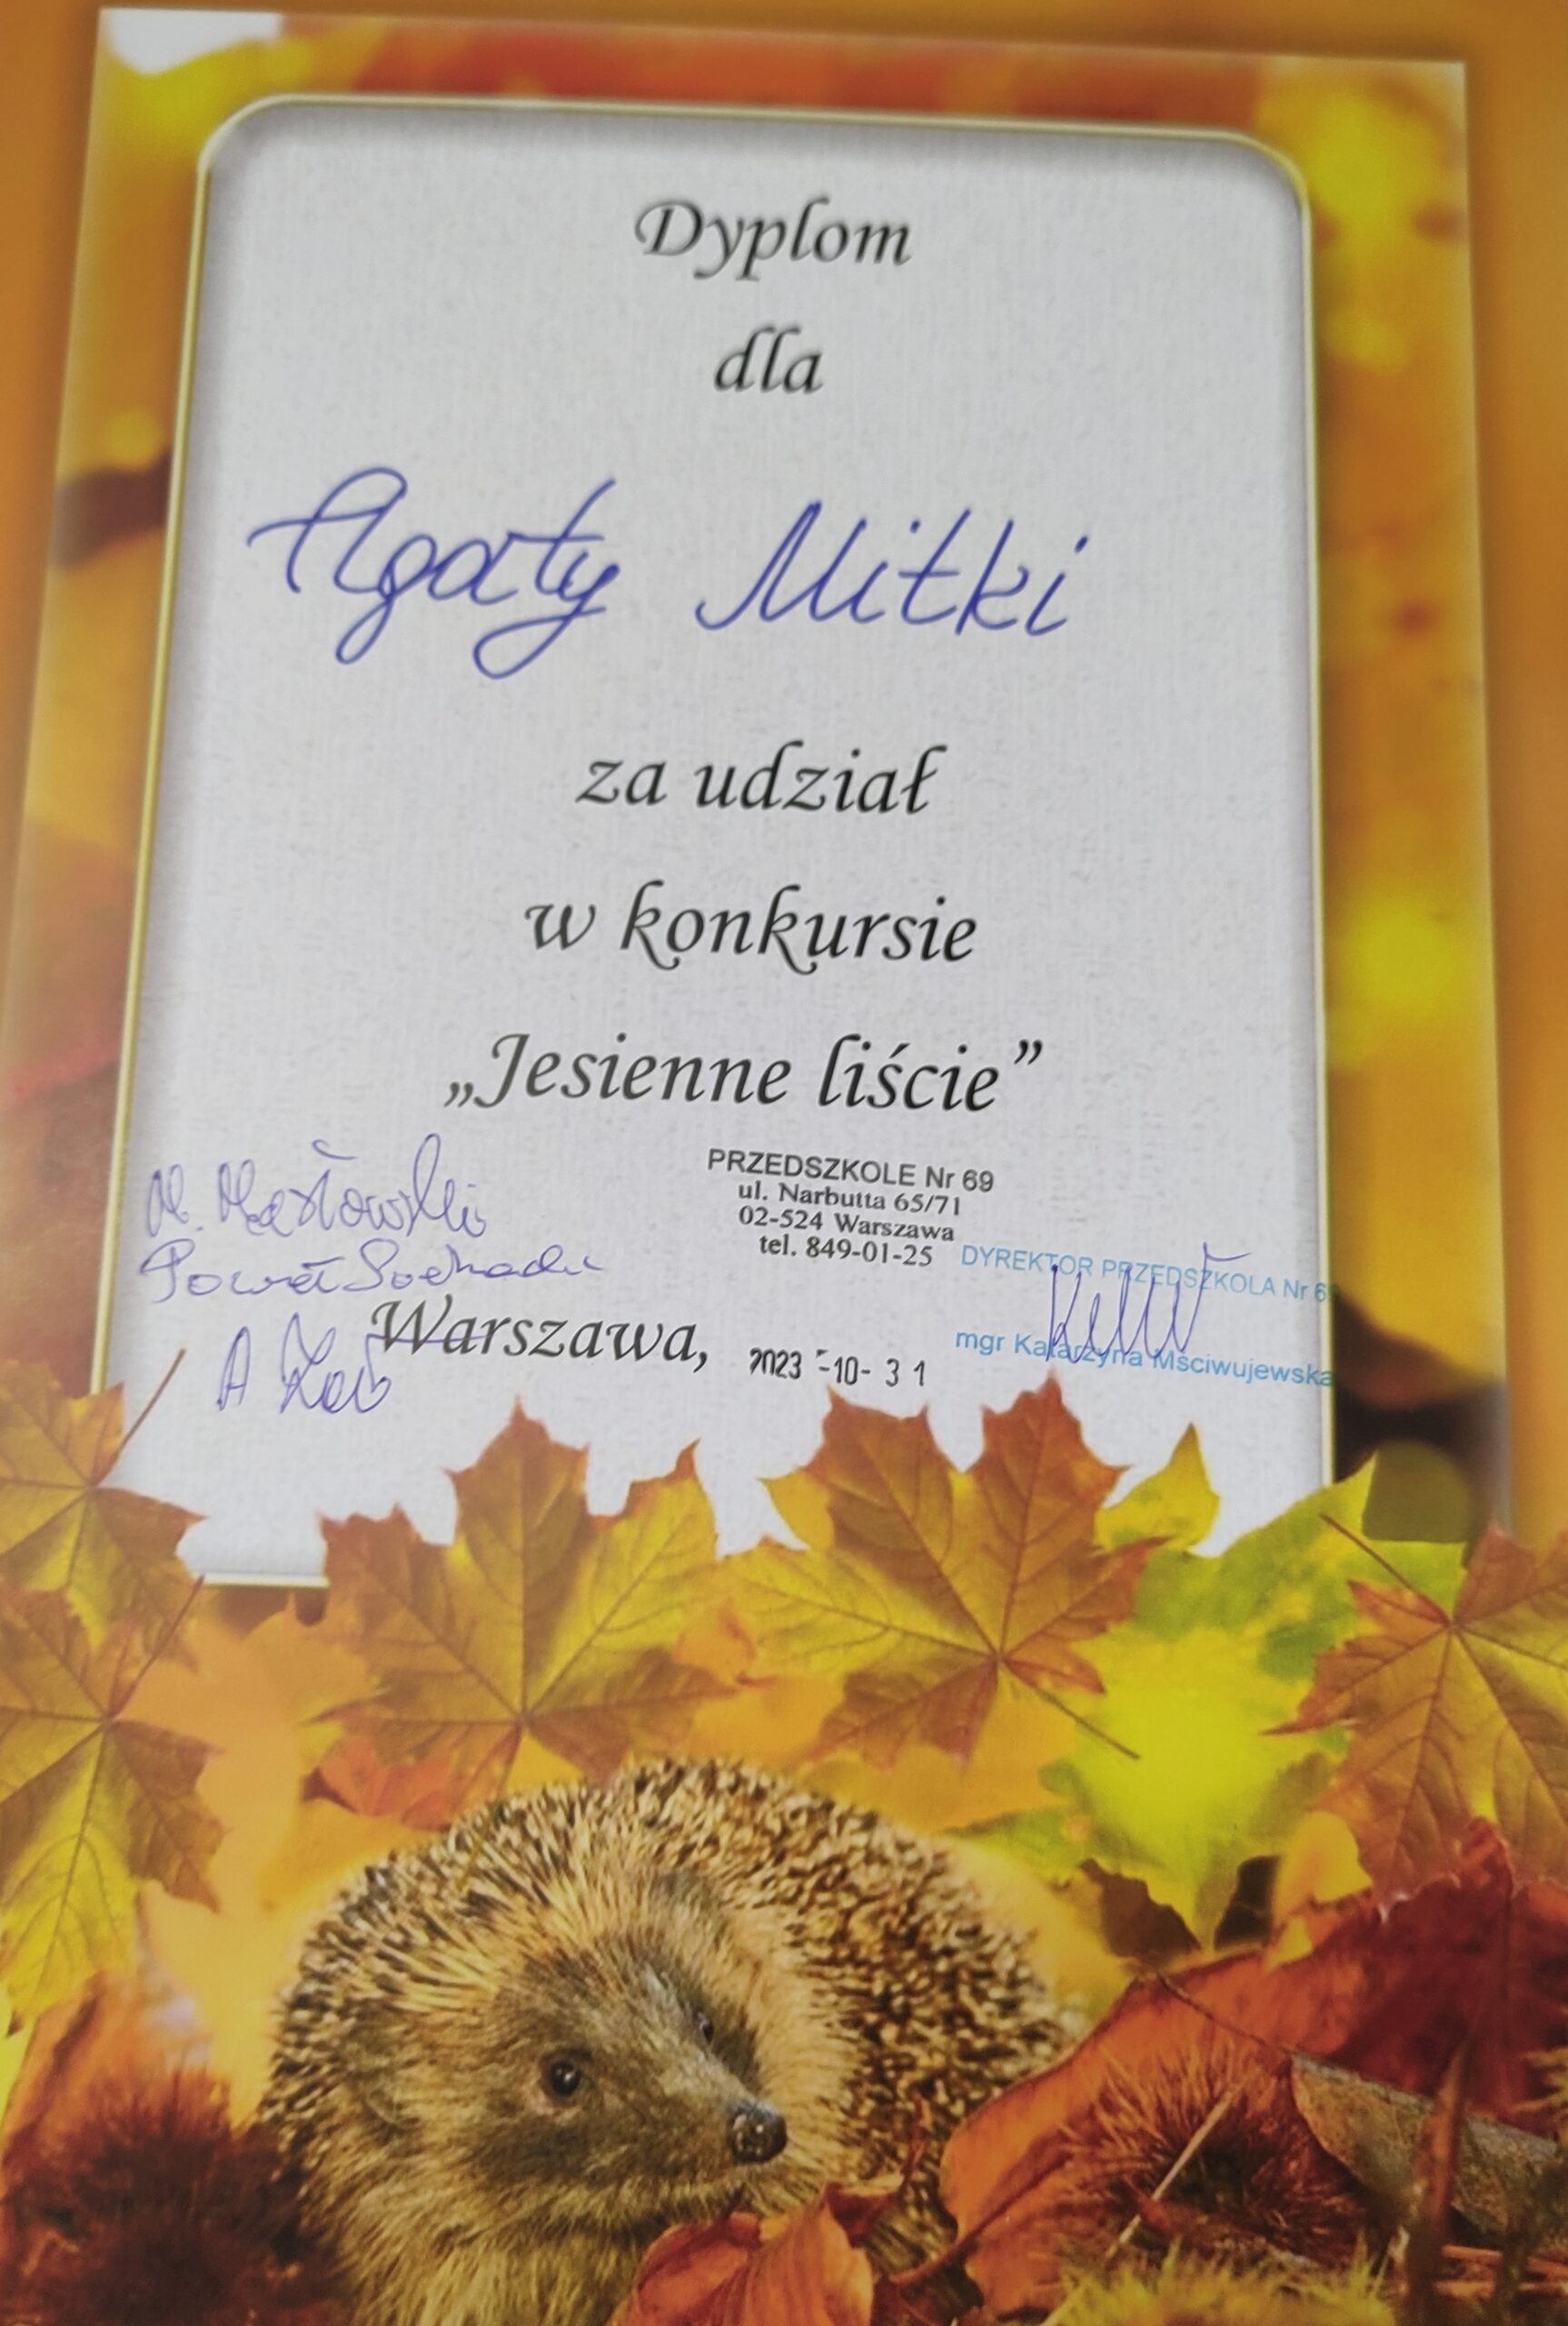 Dyplom
dla
Agaty Mitki
za udział
w konkursie
„Jesienne liście”
PRZEDSZKOLE Nr 69
ul. Narbutta 65/71
02-524 Warszawa
tel. 849-01-25
DYREKTOR PRZEDSZKOLA Nr 6
mgr Katarzyna Mściwujewska
Warszawa, 2023 -10- 3 1